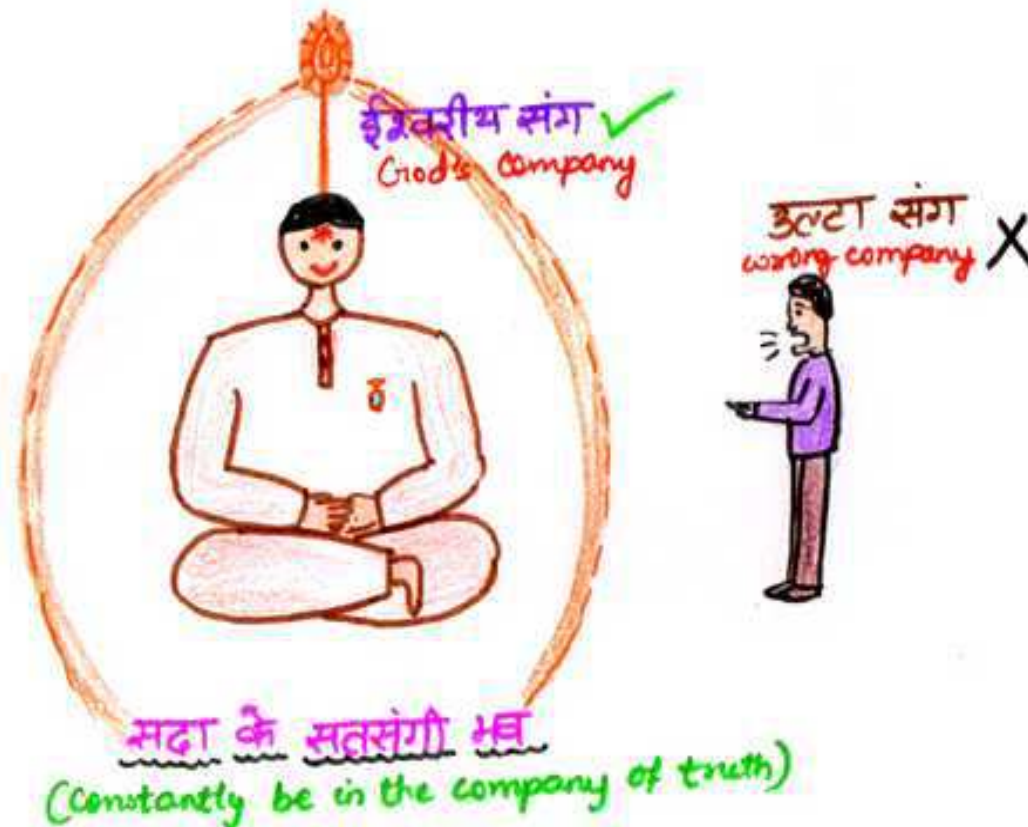 ईश्वरीय संग
God's company
उल्टा संग
wrong company
सदा के सतसंगी भव
(Constantly be in the company of truth)